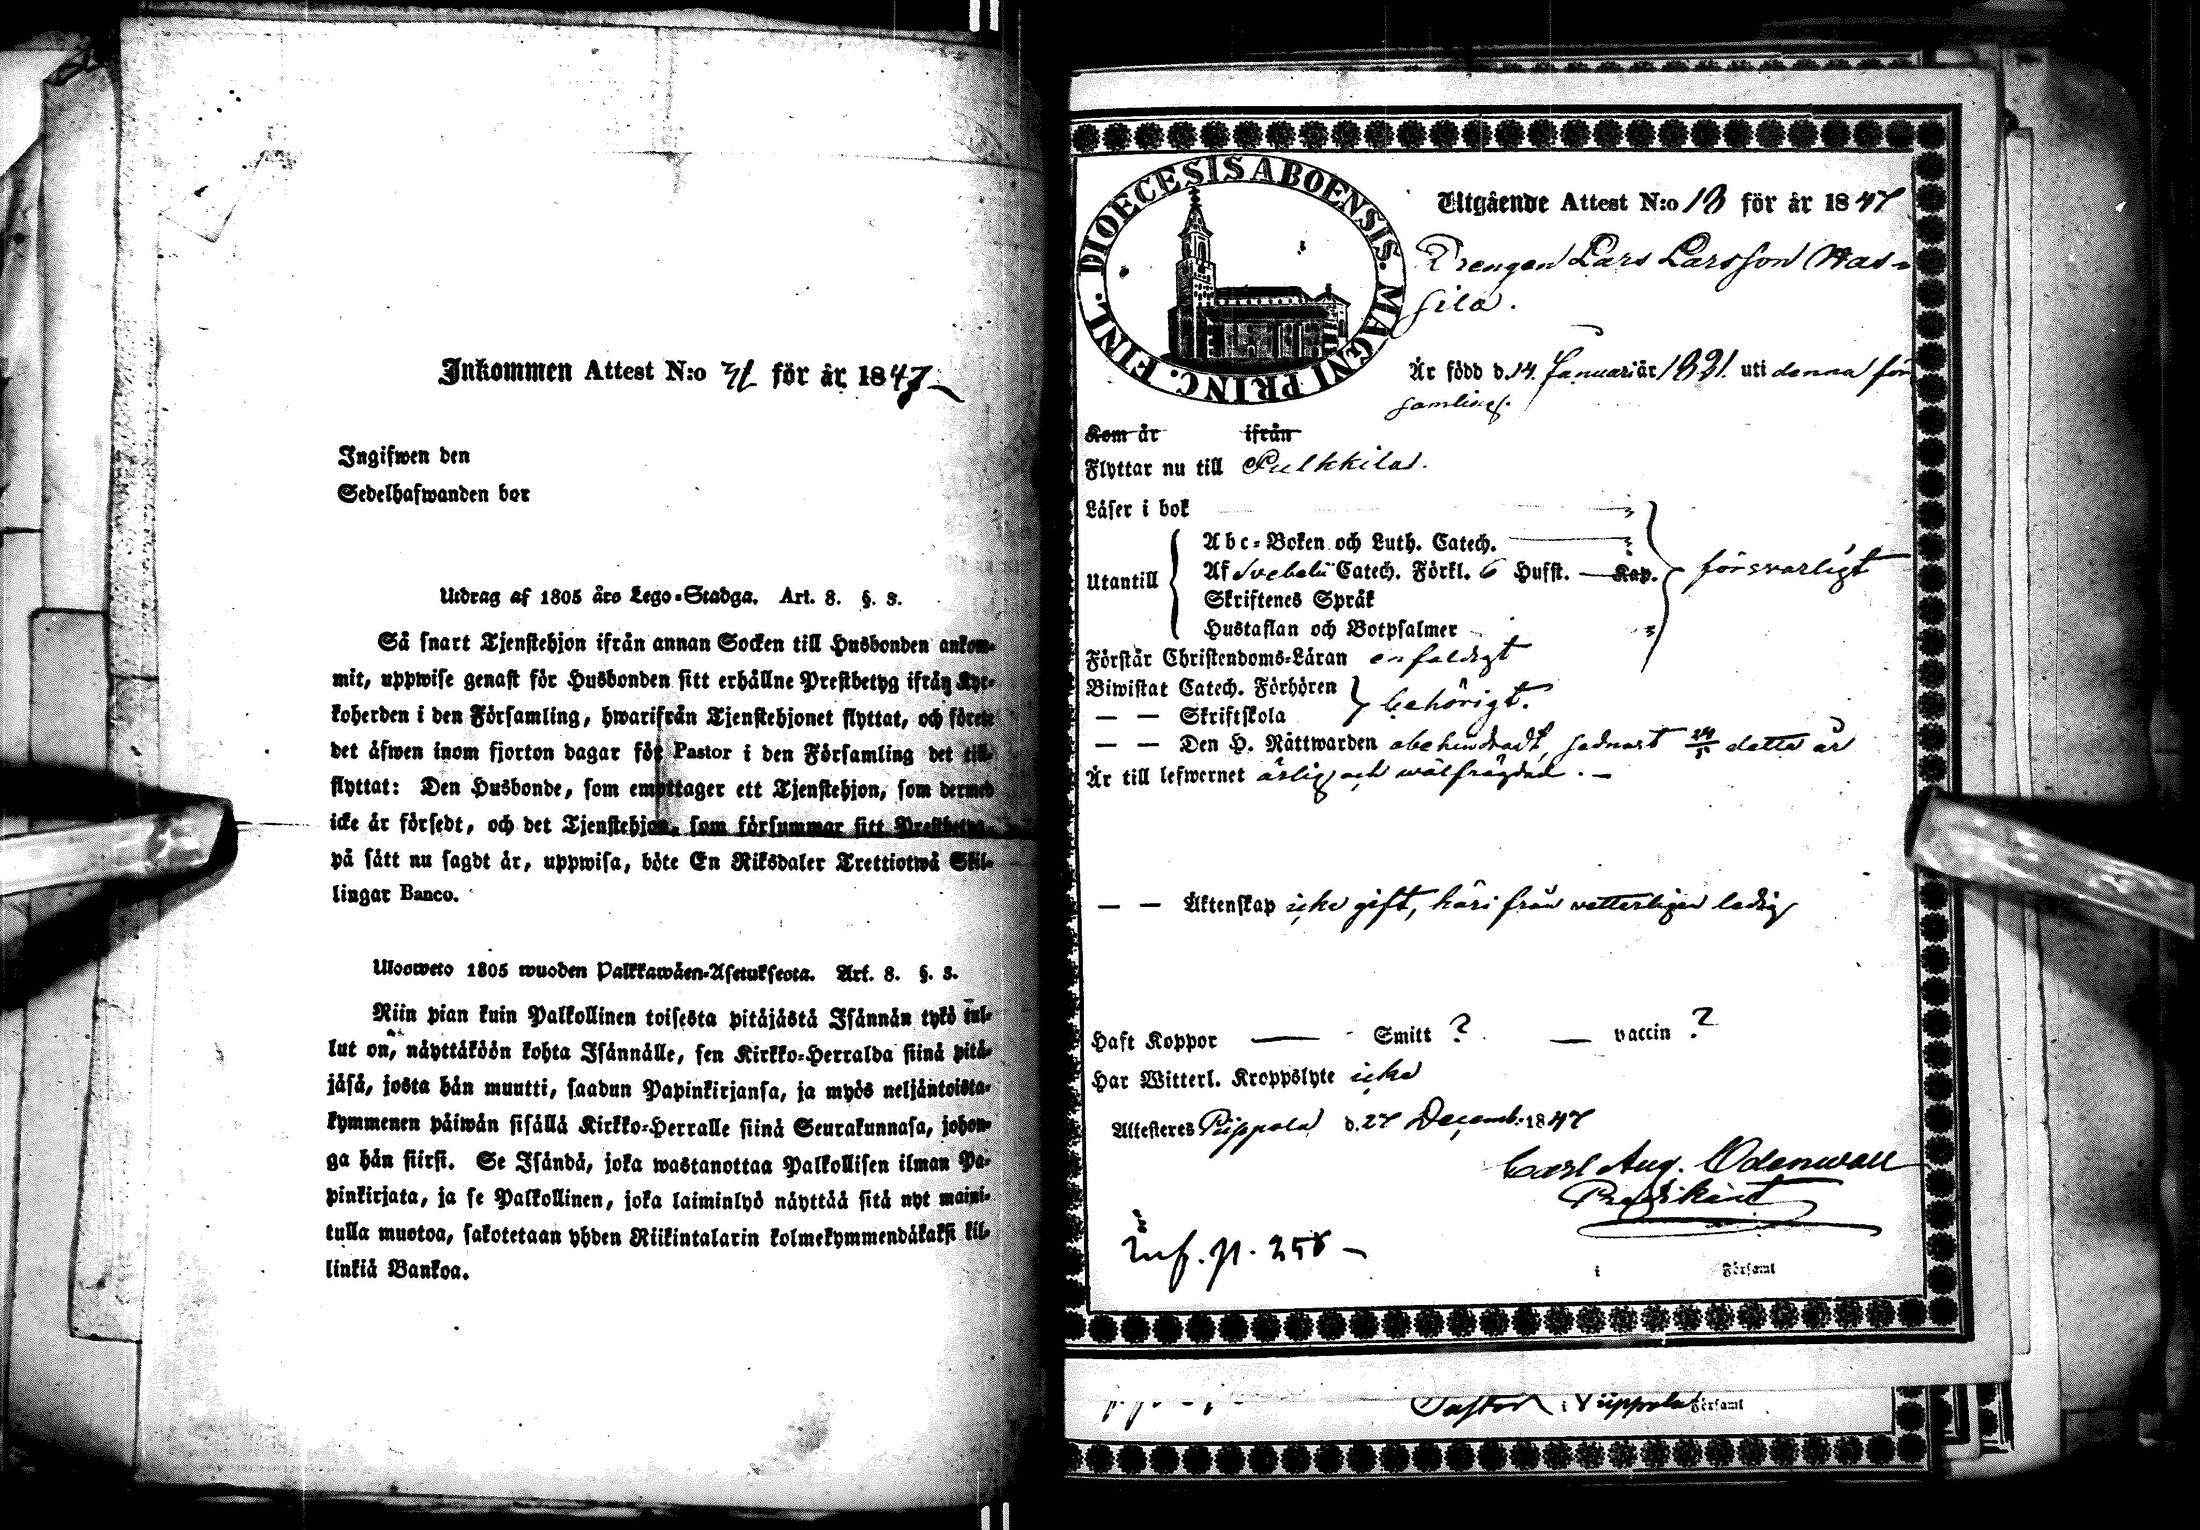 Inkommen Attest N:o 71 för år 1847
Ingifwen den
Sedelhafwanden bor
Utdrag af 1805 års Lego-Stadga. Art. 8. §. 3.
Så snart Tjenstehjon ifrån annan Socken till Husbonden ankom-
mit, uppwise genast för Husbonden sitt erhållne Prestbetyg ifrån Kyr-
koherden i den Församling, hwarifrån Tjenstehjonet flyttat, och förete
det äfwen inom fjorton dagar för Pastor i den Församling det till-
flyttat: Den Husbonde, som emottager ett Tjenstehjon, som dermed
icke är försedt, och det Tjenstehjon, som försummar sitt Prestbetyg,
på sätt nu sagdt är, uppwisa, böte En Riksdaler Trettiotwå Skil-
lingar Banco.
Ulosweto 1805 wuoden Palkkawäen-Asetuksesta. Art. 8. §. 3.
Niin pian kuin Palkollinen toisesta pitäjästä Isännän tykö tul-
lut on, näyttäköön kohta Isännälle, sen Kirkko-Herralda siinä pitä-
jäsä, josta hän muutti, saadun Papinkirjansa, ja myös neljäntoista-
kymmenen päiwän sisällä Kirkko-Herralle siinä Seurakunnasa, johon-
ga hän siirsi. Se Isändä, joka wastanottaa Palkollisen ilman Pa-
pinkirjata, ja se Palkollinen, joka laiminlyö näyttää sitä nyt maini-
tulla muotoa, sakotetaan yhden Riikintalarin kolmekymmendäkaksi kil-
linkiä Bankoa.
DIOECESIS ABOENSIS. MAGNI PRINC. FINL.
Utgående Attest N:o 13 för år 1847
Drengen Lars Larsson Has-
sila.
Är född d. 14 Januari år 1831 uti denna för
samling.
Kom år ifrån
Flyttar nu till Pulkkila.
Läser i bok
Abc-Boken och Luth. Catech.
Utantill Af Svebelii Catech. Förkl. 6 Hufst. Kap. försvarligt
Skriftenes Språk
Hustaflan och Botpsalmer
Förstår Christendoms-Läran enfaldigt
Biwistat Catech. Förhören
— — Skriftskola behörigt.
— — Den H. Nattwarden obehindradt, sednast detta år
Är till lefwernet ärlig och wälfrägdad.
— — Äktenskap icke gift, härifrån vetterligen ledig
Haft Koppor — Smitt ? — vaccin ?
Har Witterl. Kroppslyte icke
Attesteres Pippola d. 27 Decemb. 1847
Carl Aug. Odenwall
Predikant
Inf. p. 258
i Församl
Pastor i Piippola Församl